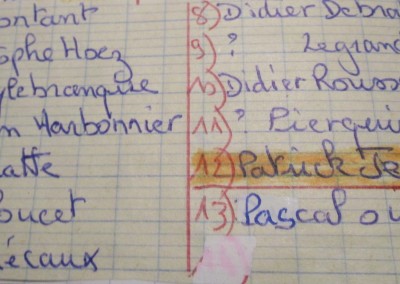 ontant
sphe Hoez
lebranque
n Harbonnier
atte
oucet
écaux
8) Didier Debra
9) ? Legrand
10) Didier Rouss
11) ? Pierqui
12) Patrick Te
13) Pascal ou